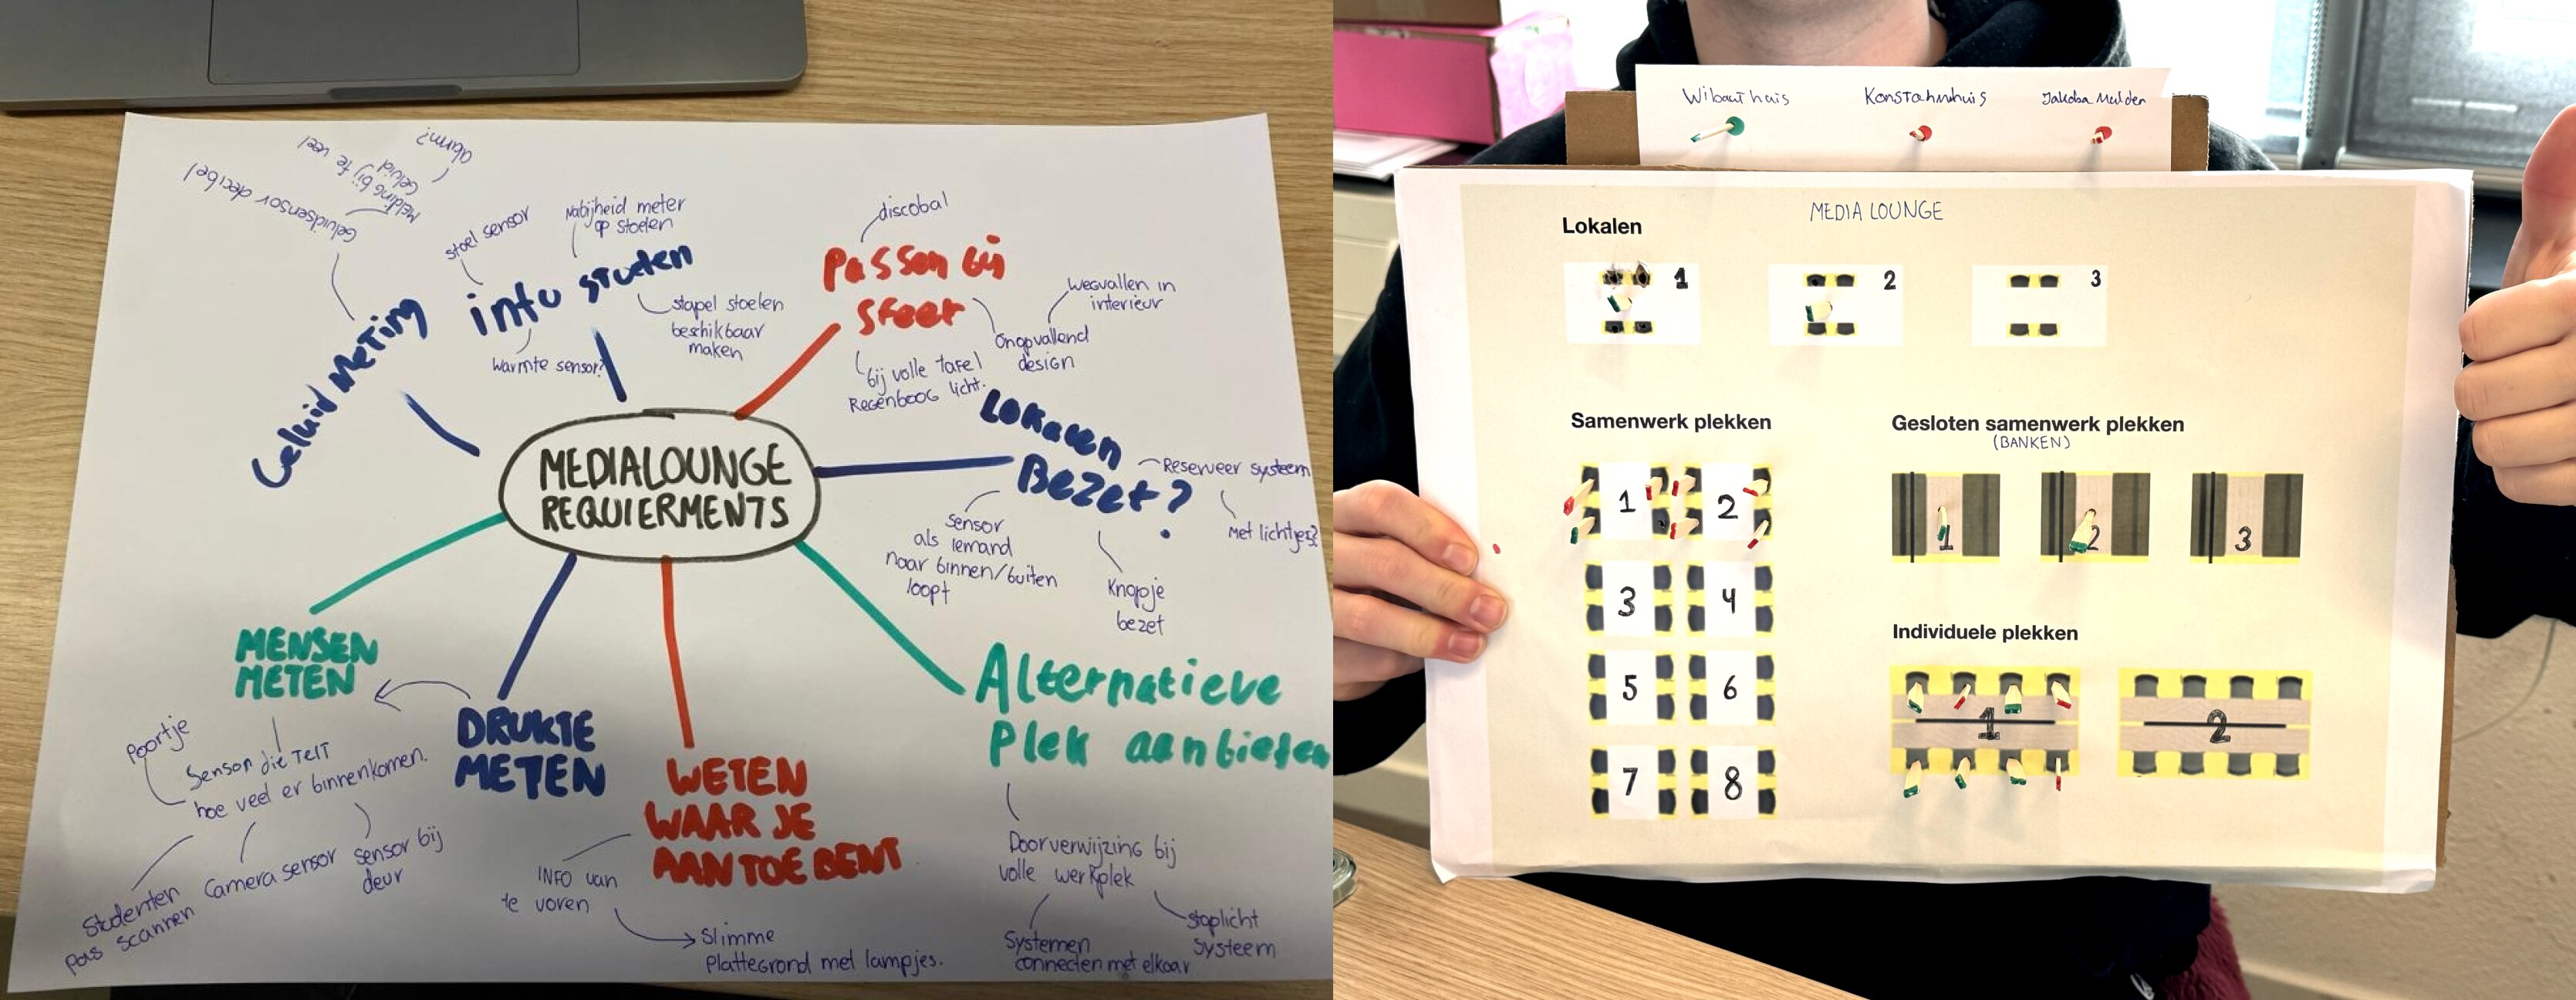 Geluidsensor decibel
Melding bij te veel
geluid
alarm?
Geluid Meting
stoel sensor
Nabijheid meter
op stoelen
info stoelen
stapel stoelen
beschikbaar
maken
Warmte sensor?
discobal
Passen bij
sfeer
wegvallen in
interieur
Onopvallend
design
bij volle tafel
Regenboog licht.
Lokalen
Bezet?
Reserveer systeem
Met lichtjes?
sensor
als iemand
naar binnen/buiten
loopt
Knopje
bezet
MEDIALOUNGE
REQUIERMENTS
MENSEN
METEN
poortje
Sensor die telt
hoe veel er binnenkomen.
Studenten
pas scannen
Camera sensor
sensor bij
deur
DRUKTE
METEN
WETEN
WAAR JE
AAN TOE BENT
INFO van
te voren
Slimme
Plattegrond met lampjes.
Alternatieve
Plek aanbieten
Doorverwijzing bij
volle werkplek
Systemen
connecten met elkaar
stoplicht
systeem
Wibauthuis
Jakoba Mulder
MEDIA LOUNGE
Lokalen
1
2
3
Samenwerk plekken
1
2
3
4
5
6
7
8
Gesloten samenwerk plekken
(BANKEN)
1
2
3
Individuele plekken
1
2